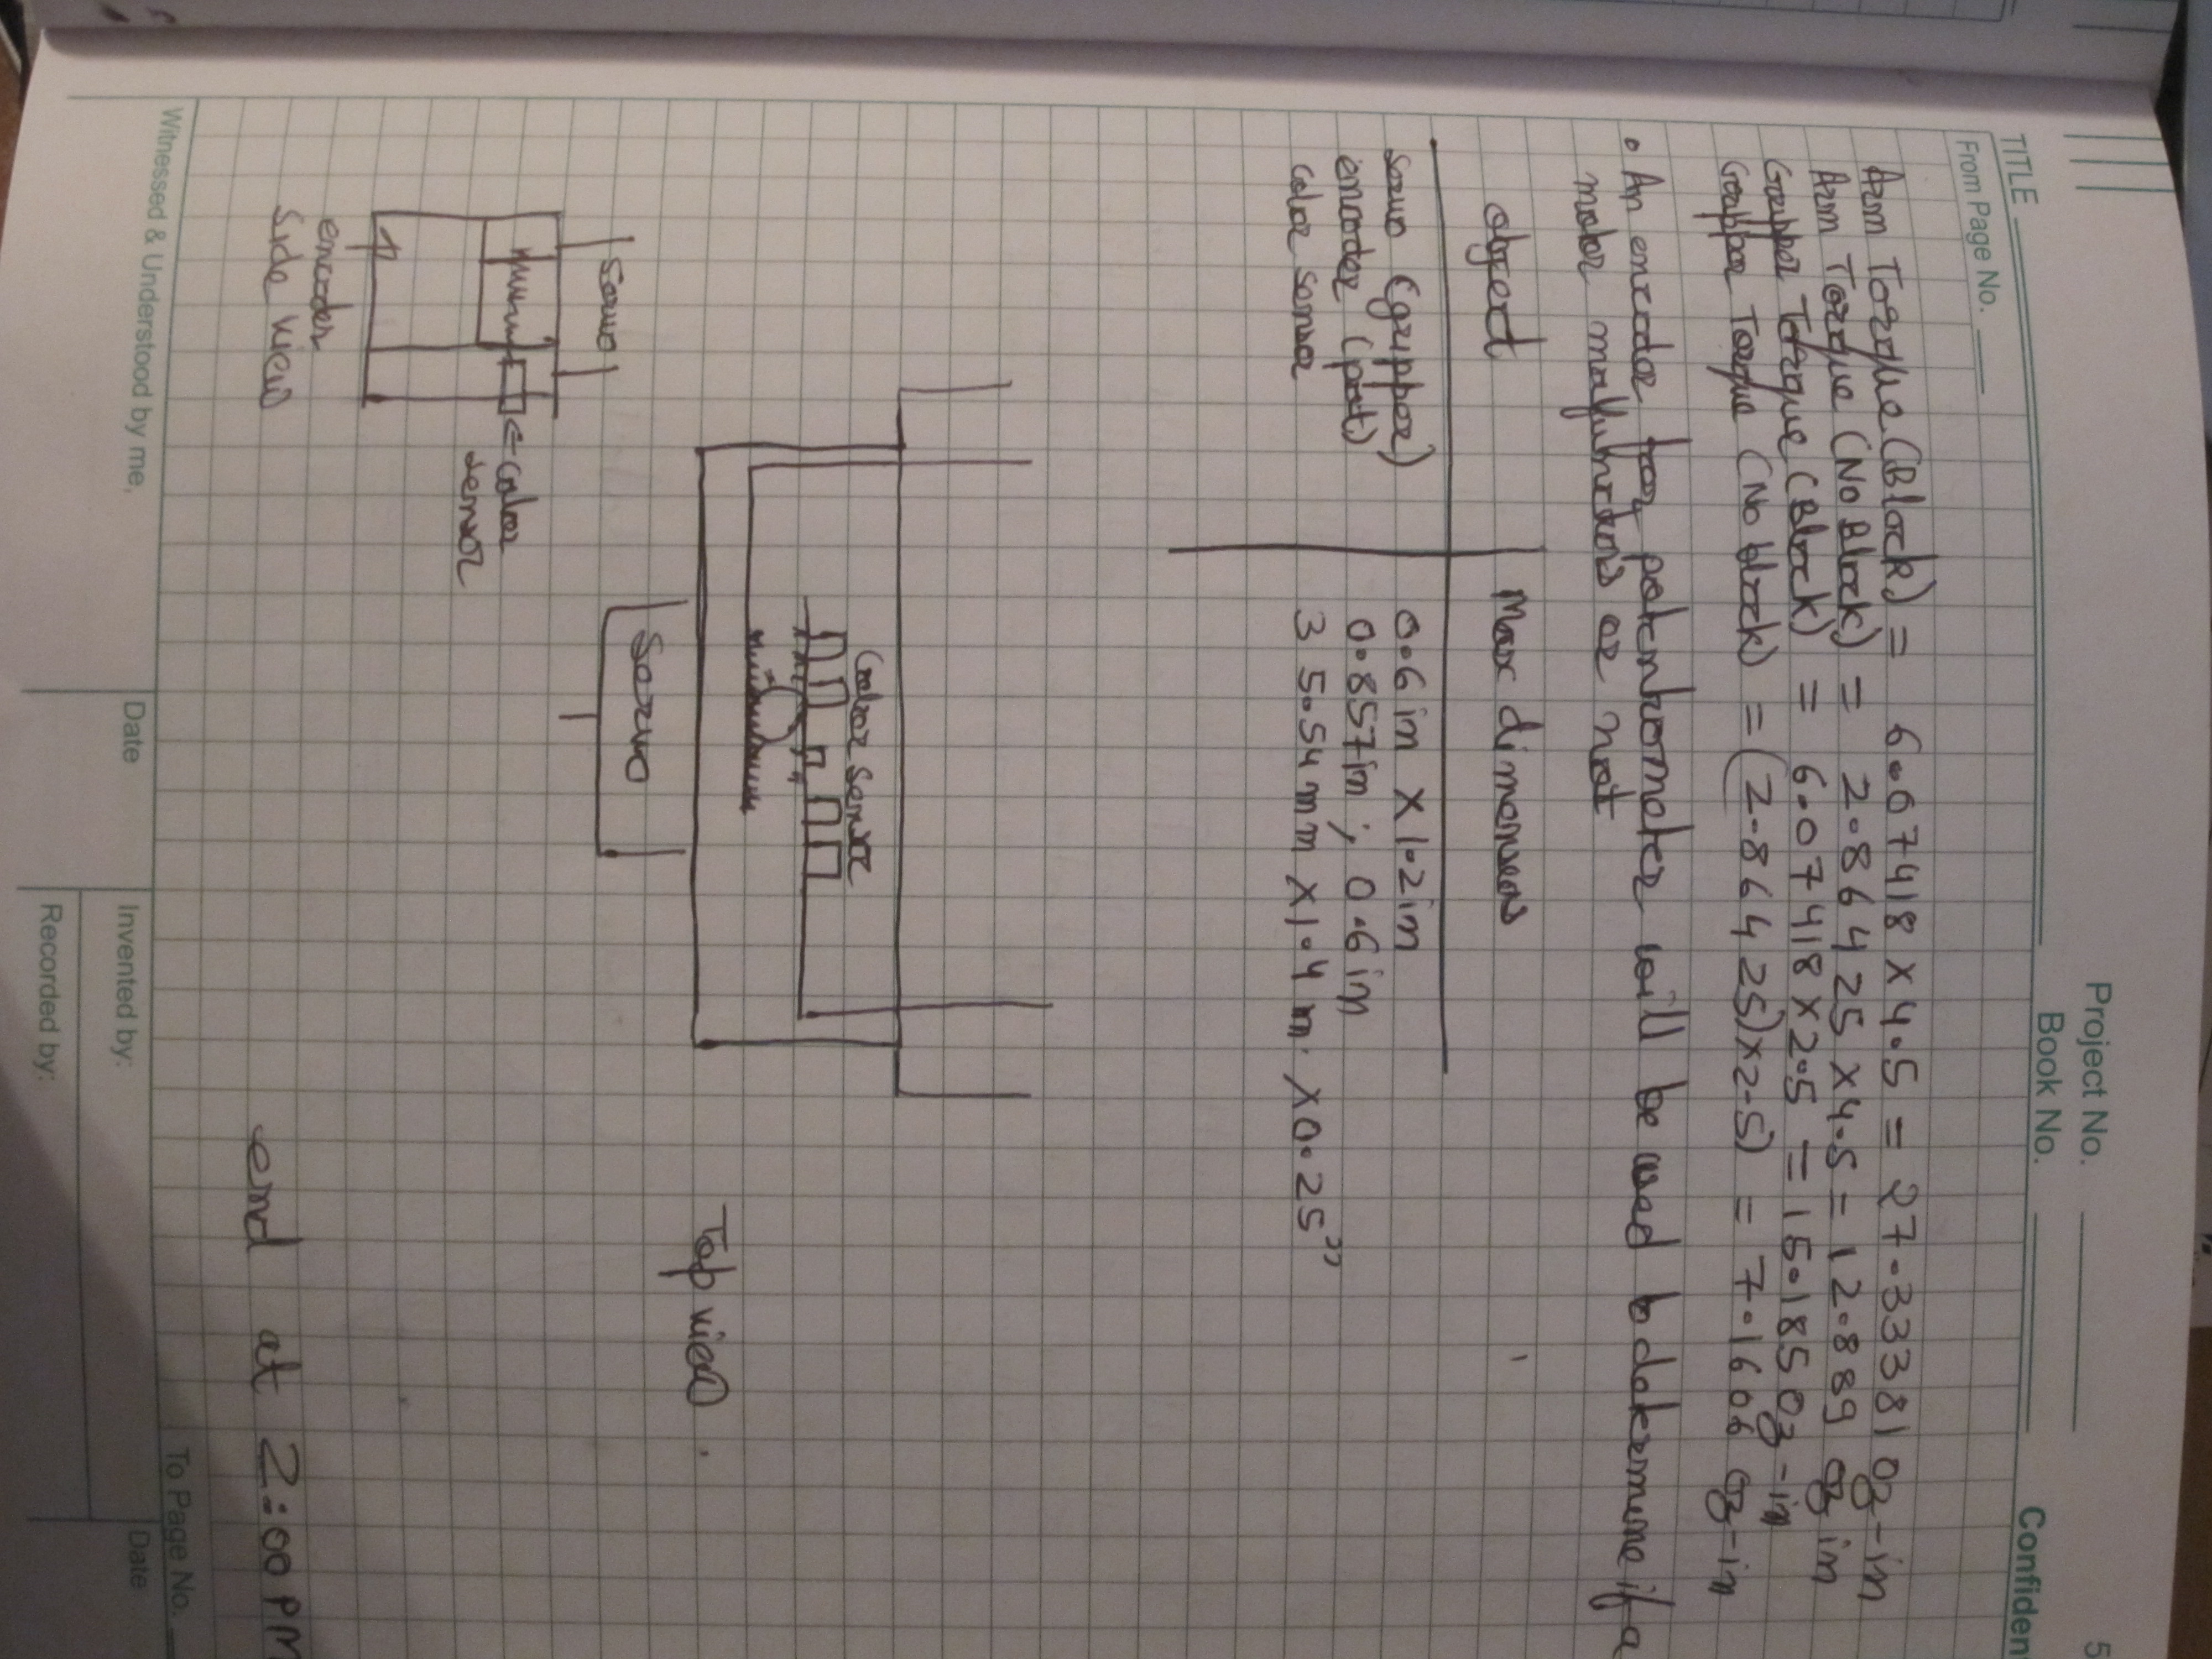 Project No.
5
TITLE
Book No.
Confiden
From Page No.
Arm Torque (Block) = 6.07418 x 4.5 = 27.3338 oz-in
Arm Torque (No Block) = 2.86425 x 4.5 = 12.889 oz in
Gripper Torque (Block) = 6.07418 x 2.5 = 15.185 oz-in
Gripper Torque (No block) = (2.86425) x 2.5) = 7.1606 oz-in
• An encoder for potentiometer will be used to determine if a
motor malfunctions or not
object Max dimensions
servo (gripper) 0.6in x 1.2in
encoder (pot) 0.857in ; 0.6in
color sensor 35.54mm x 1.4in x 0.25"
color sensor
servo
Top view
servo
color
sensor
encoder
side view
end at 2:00 PM
To Page No.
Witnessed & Understood by me,
Date
Invented by:
Date
Recorded by: